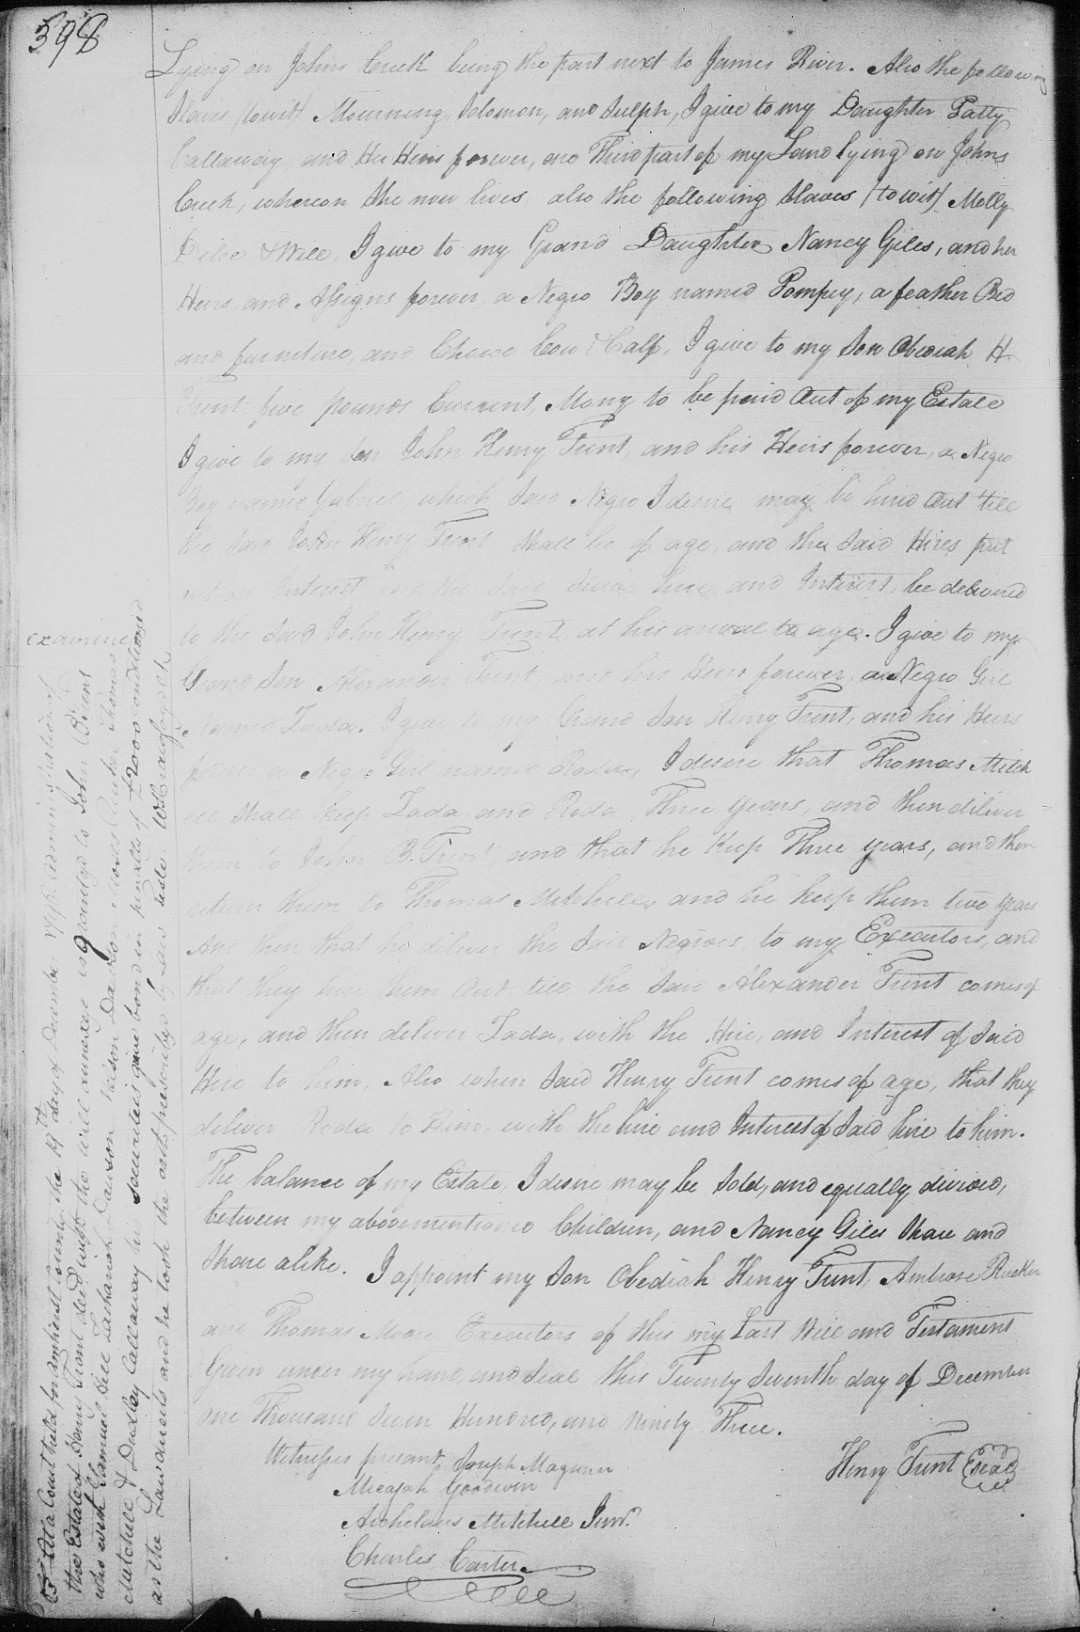 398
Lying on Johns Creek being the part next to James River. Also the following
Slaves (to wit) Mourning Solomon, and Sulph, I give to my Daughter Patty
Callaway and Her Heirs forever, one Third part of my Land lying on Johns
Creek, whereon She now lives also the following Slaves (to wit) Molly
Dilce & Will, I give to my Grand Daughter Nancy Giles, and her
Heirs, and Assigns forever a Negro Boy named Pompey, a feather Bed
and furniture, and Choice Cow & Calf, I give to my Son Obediah H
Trent five pounds Current, Mony to be paid Out of my Estate
I give to my Son John Henry Trent, and his Heirs forever, a Negro
Boy name Gabriel which Said Negro I desire may be hired Out till
the Said John Henry Trent Shall be of age, and the Said Hires put
out on Interest and the Said hire and Interest, be delivered
to the Said John Henry Trent at his arival to age. I give to my
Grand Son Alexander Trent and his Heirs forever, a Negro Girl
Named Tada. I give to my Grand Son Henry Trent, and his Heirs
forever a Negro Girl named Roda, I desire that Thomas Mitch
ell Shall keep Tada and Roda Three years, and then deliver
them to John B. Trent and that he Keep Three years, and then
return them to Thomas Mitchell, and he keep them two years
And then that he deliver the Said Negroes to my Executors, and
that they hire them Out till the Said Alexander Trent comes of
age, and then deliver Tada, with the Hire, and Interest of Said
Hire to him, Also when Said Henry Trent comes of age, that they
deliver Roda to Him, with the hire and Interest of Said hire to him.
The balance of my Estate, I desire may be Sold, and equally divided,
between my abovementioned Children, and Nancy Giles Share and
Share alike. I appoint my Son Obediah Henry Trent, Ambrose Rucker
and Thomas Moore Executors of this my Last Will and Testament
Given under my hand and Seal this Twenty Seventh day of December
One Thousand Seven Hundred, and Ninety Three.
Witnesses present, Joseph Magann
Henry Trent (Seal)
Micajah Goodwin
Archelaus Mitchell Junr.
Charles Carter
examined
At a Court held for Amherst County the 19th day of December 1796 administration of
the Estate of Henry Trent decd. with the will annexed is granted to John Trent
who with Samuel Hill Zachariah Dawson Nelson Dawson Thomas
Mitchell & Dudley Callaway his securities gave bond in penalty of £2000 conditioned
as the Law directs and he took the oath prescribed by law Teste W Loving